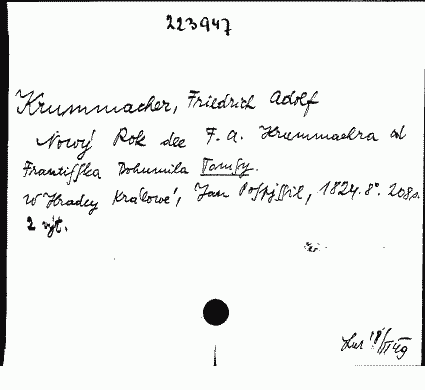 223947
Krummacher, Friedrich Adolf
Nowý Rok dle F. A. Krummachra od
Frantisska Bohumila Tomsy.
W Hradcy Králowé, Jan Pospjssil, 1824. 8°. 208 s.
2 výt.